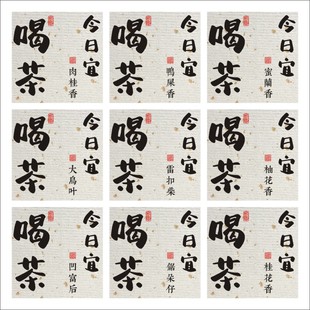 今日宜
喝茶
肉桂香
今日宜
喝茶
鸭屎香
今日宜
喝茶
蜜蘭香
今日宜
喝茶
大烏叶
今日宜
喝茶
雷扣柴
今日宜
喝茶
柚花香
今日宜
喝茶
凹富后
今日宜
喝茶
鋸朵仔
今日宜
喝茶
桂花香